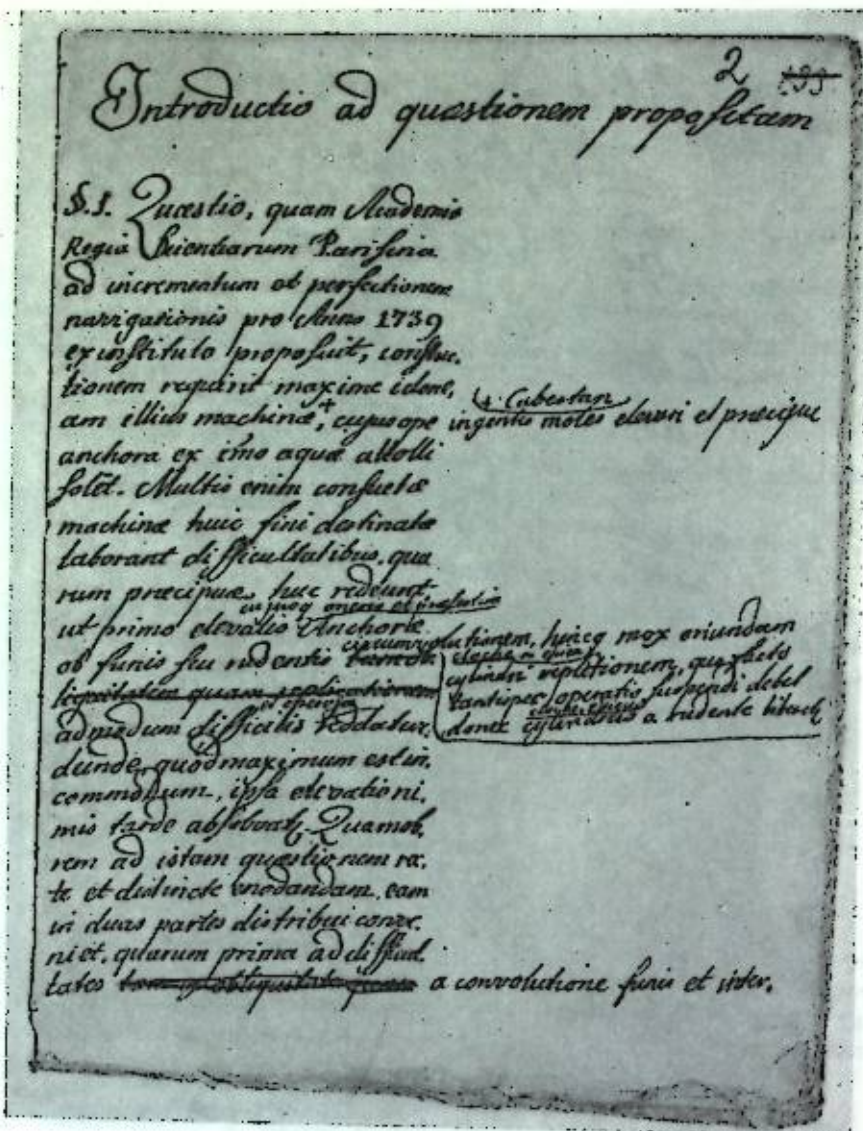 2
Introductio ad quæstionem propositam
§.1. Quæstio, quam Academia
Regia Scientiarum Parisina
ad incrementum et perfectionem
navigationis pro Anno 1739
ex instituto proposuit, constru-
tionem requirit maxime idone,
am illius machinæ,+ cujus ope ingentis moles elevari et præcipue
+ Cabestan
anchora ex imo aquæ attolli
solet. Multis enim consuetæ
machinæ huic fini destinatæ
laborant difficultatibus, qua
rum præcipuæ huc redeunt,
ut primo elevatio Anchoræ
ob funis seu rudentis circumvolutionem, hincq mox oriundam
cylindri repletionem, quo facto
tantisper operatio suspendi debet
donec a rudente liberetur
admodum difficilis reddatur,
deinde, quod maximum est in,
commodum, ipsa elevatio ni,
mis tarde absolvatur. Quamob,
rem ad istam quæstionem re,
te et distincte enodandam, eam
in duas partes distribui conve,
niet, quarum prima ad difficul
tates a convolutione funis et inter,